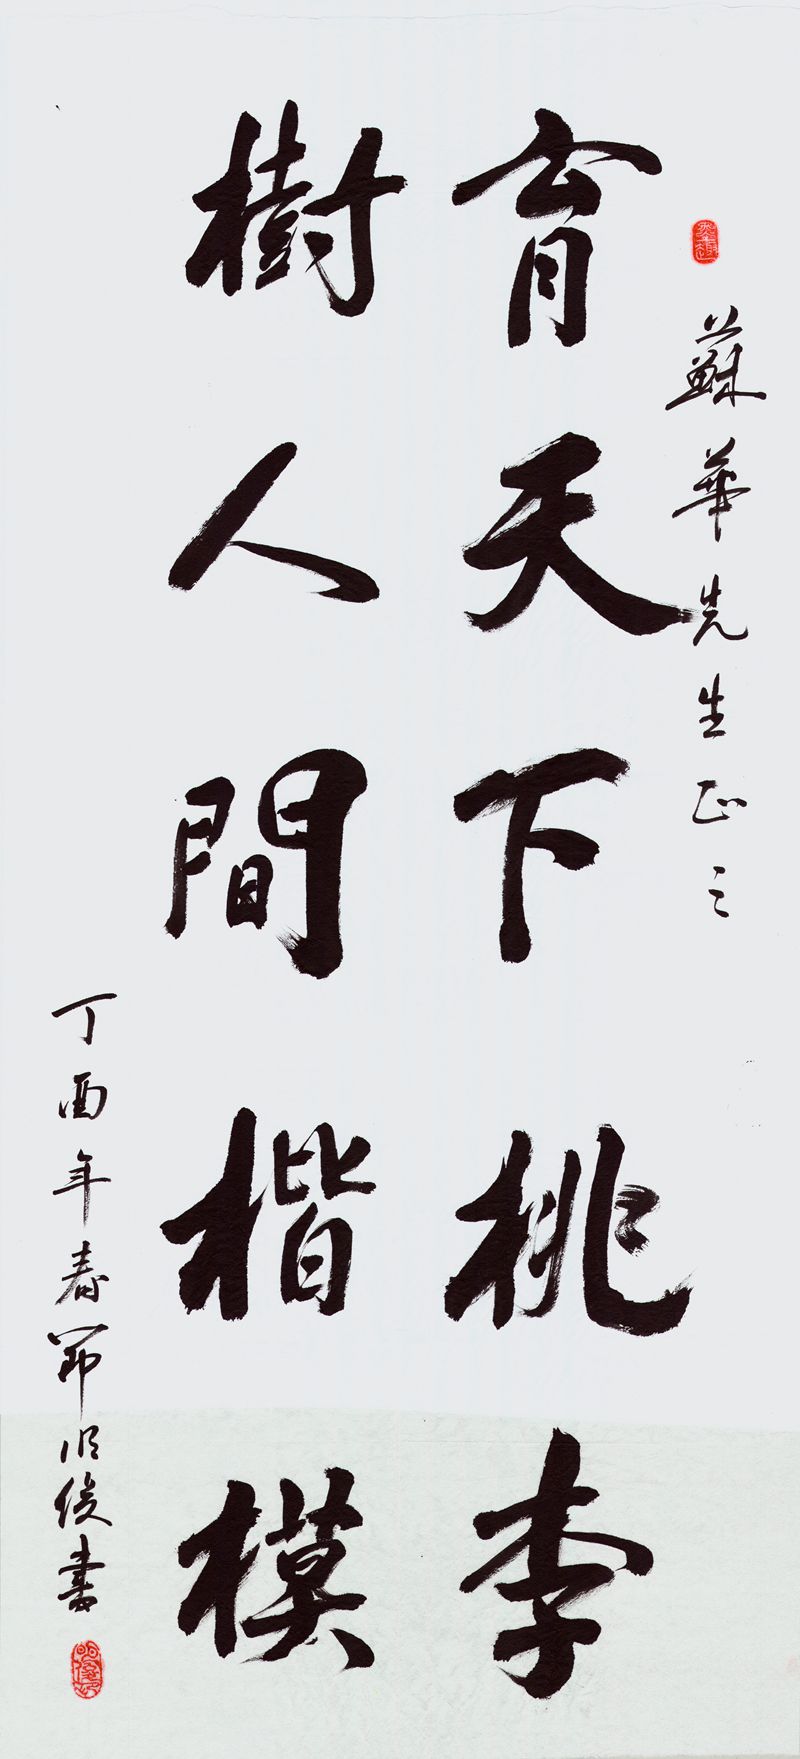 蘇華先生正之
育天下桃李
樹人間楷模
丁酉年春節 俊書